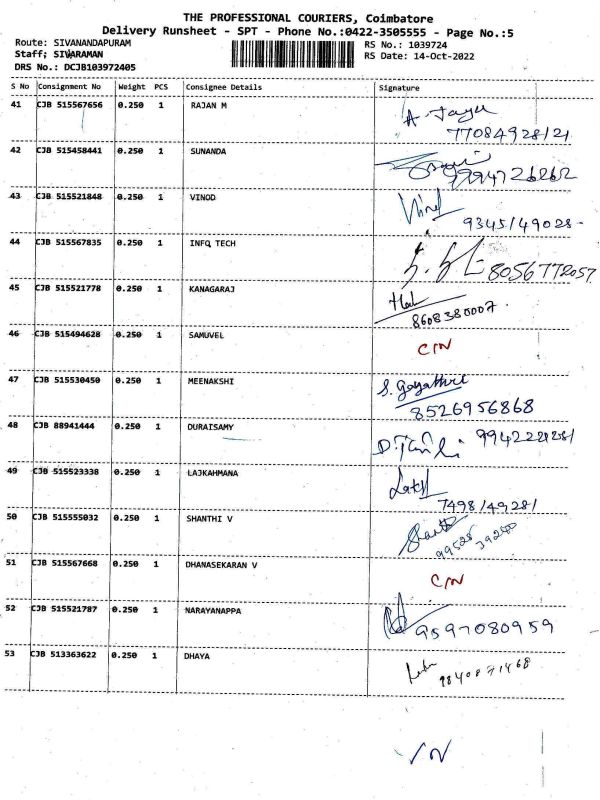 THE PROFESSIONAL COURIERS, Coimbatore
Delivery Runsheet - SPT - Phone No.:0422-3505555 - Page No.:5
Route: SIVANANDAPURAM
Staff; SIVARAMAN
DRS No.: DCJB103972405
RS No.: 1039724
RS Date: 14-Oct-2022
S No Consignment No Weight PCS Consignee Details Signature
41 CJB 515567656 0.250 1 RAJAN M A. Jaya
77084928121
42 CJB 515458441 0.250 1 SUNANDA 9994726262
43 CJB 515521848 0.250 1 VINOD Vinod
9345149028-
44 CJB 515567835 0.250 1 INFO TECH 8056772057
45 CJB 515521778 0.250 1 KANAGARAJ
8608380007.
46 CJB 515494628 0.250 1 SAMUVEL C/N
47 CJB 515530450 0.250 1 MEENAKSHI S. Gayathri
8526956868
48 CJB 88941444 0.250 1 DURAISAMY 9942221281
49 CJB 515523338 0.250 1 LAJKAHMANA
7498149281
50 CJB 515555032 0.250 1 SHANTHI V Shanthi
99528 39240
51 CJB 515567668 0.250 1 DHANASEKARAN V C/N
52 CJB 515521787 0.250 1 NARAYANAPPA 9597080959
53 CJB 513363622 0.250 1 DHAYA 9840871468